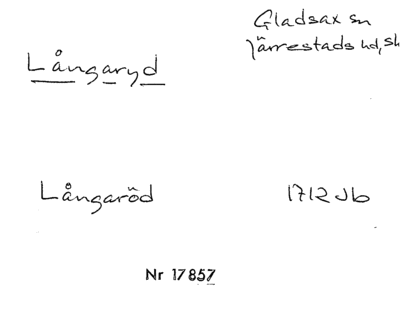 Gladsax sn
Järrestads hd, Sk
Långaryd
Långaröd 1712 Jb
Nr 17857